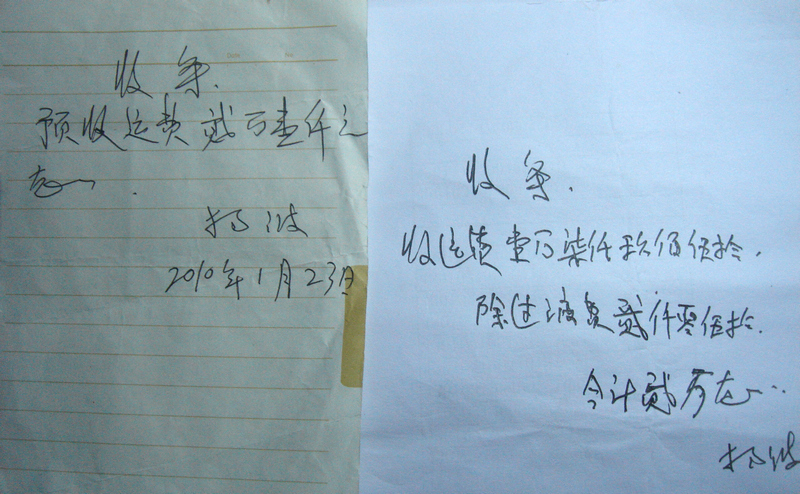 收条.
预收运费贰万壹仟元
杨波
2010年1月23日
收条.
收运费壹万柒仟玖佰伍拾.
除过费贰仟零伍拾.
合计贰万
杨波